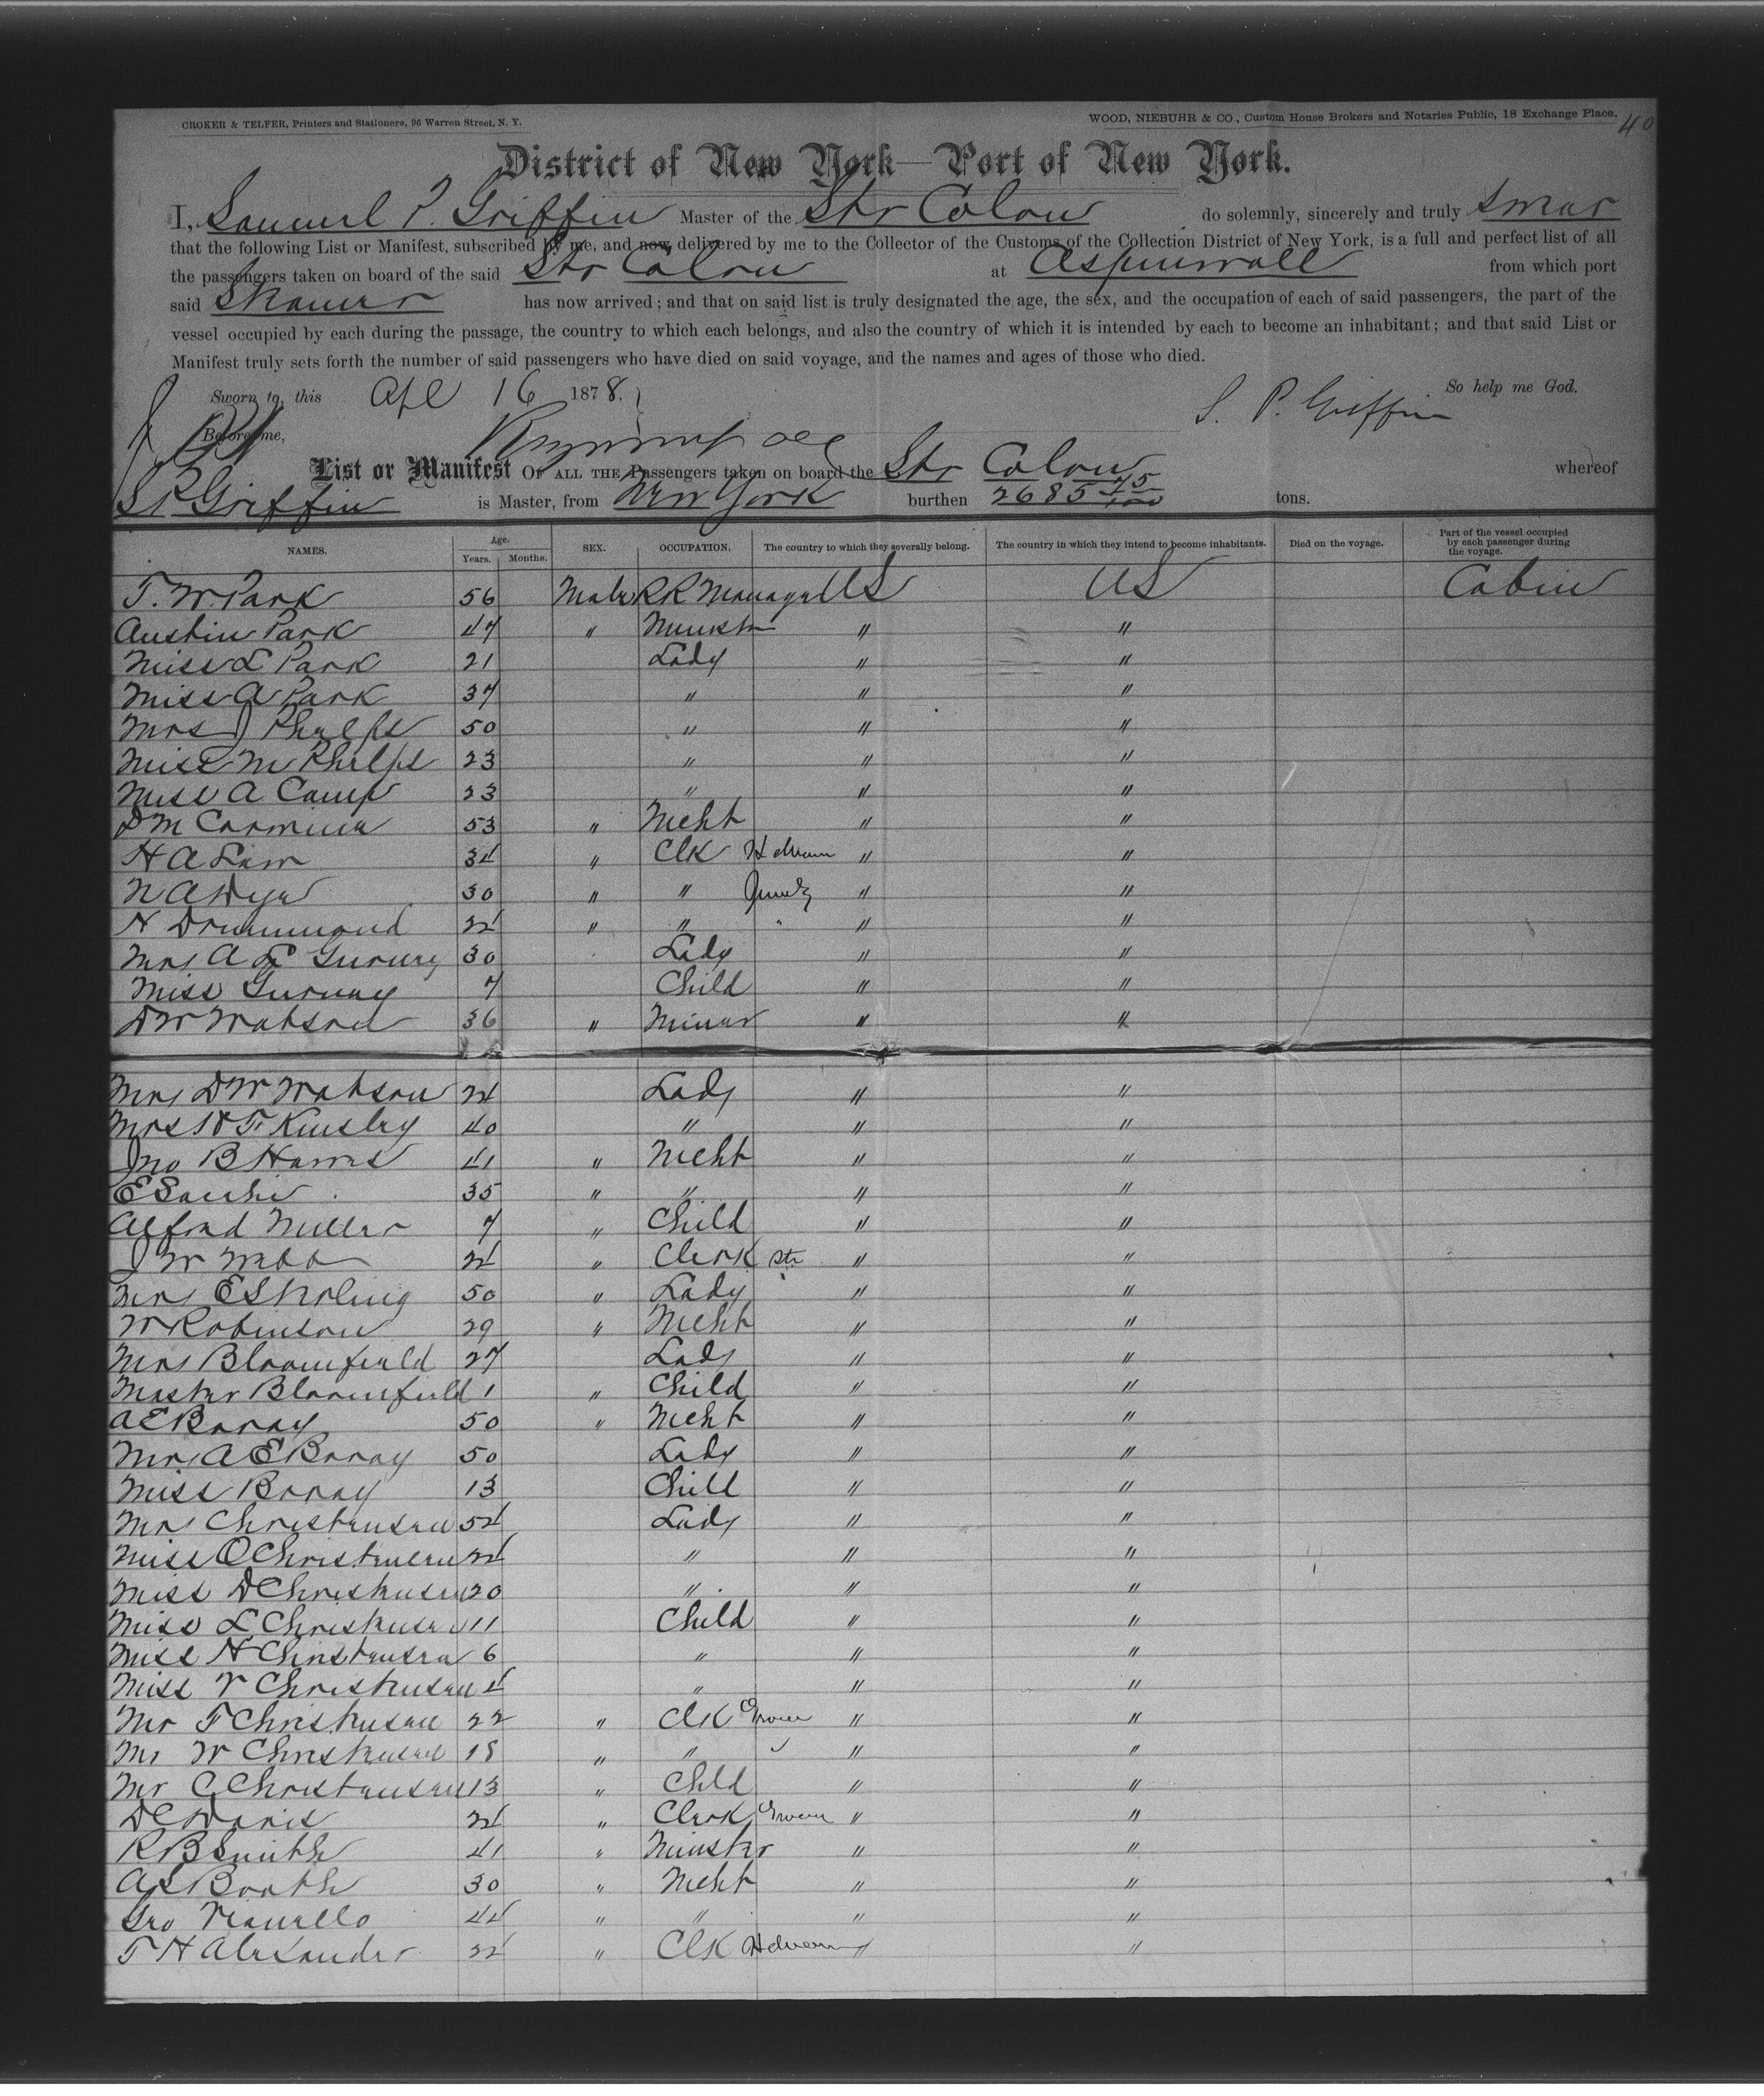 CROKER & TELFER, Printers and Stationers, 96 Warren Street, N. Y.
WOOD, NIEBUHR & CO., Custom House Brokers and Notaries Public, 18 Exchange Place.
40
District of New York—Port of New York.
I, Samuel P. Griffin Master of the Str Colon do solemnly, sincerely and truly swear
that the following List or Manifest, subscribed by me, and now delivered by me to the Collector of the Customs of the Collection District of New York, is a full and perfect list of all
the passengers taken on board of the said Str Colon at Aspinwall from which port
said Steamer has now arrived; and that on said list is truly designated the age, the sex, and the occupation of each of said passengers, the part of the
vessel occupied by each during the passage, the country to which each belongs, and also the country of which it is intended by each to become an inhabitant; and that said List or
Manifest truly sets forth the number of said passengers who have died on said voyage, and the names and ages of those who died.
So help me God.
Sworn to, this Apl 16 1878.
S. P. Griffin
Before me,
List or Manifest OF ALL THE Passengers taken on board the Str Colon whereof
S P Griffin is Master, from New York burthen 2685 45/100 tons.
NAMES. Age. Years. Months. SEX. OCCUPATION. The country to which they severally belong. The country in which they intend to become inhabitants. Died on the voyage. Part of the vessel occupied by each passenger during the voyage.
T. W. Park 56 Male RR Manager US US Cabin
Austin Park 47 " Minister " "
Miss L Park 21 Lady " "
Miss A Park 37 " " "
Mrs J Phelps 50 " " "
Miss M Phelps 23 " " "
Miss A Camp 23 " " "
53 " Mcht " "
H A 34 " Clk " "
N A Dyer 30 " " " "
N Drummond 24 " " " " "
Mrs A L Gurney 30 Lady " "
Miss Gurney 7 Child " "
D W Watson 36 " Miner " "
Mrs D W Watson 24 Lady " "
Mrs W F Kinsley 40 " " "
Jno B Harris 41 " Mcht " "
E 35 " " " "
Alfred Miller 7 " Child " "
J W Webb 24 " Clerk Str " "
Mrs E 50 " Lady " "
W Robinson 29 " Mcht " "
Mrs Bloomfield 27 Lady " "
Master Bloomfield 1 " Child " "
A E Boray 50 " Mcht " "
Mrs A E Boray 50 Lady " "
Miss Boray 13 Child " "
Mrs Christensen 54 Lady " "
Miss O Christensen 24 " " "
Miss D Christensen 20 " " "
Miss L Christensen 11 Child " "
Miss N Christensen 6 " " "
Miss V Christensen 4 " " "
Mr F Christensen 22 " Clk Grocer " "
Mr W Christensen 18 " " " "
Mr C Christensen 13 " Chld " "
D C Davis 24 " Clerk Grocer " "
R B Smith 41 " Minister " "
A L Booth 30 " Mcht " "
Geo 44 " " " "
T H Alexander 22 " Clk " "